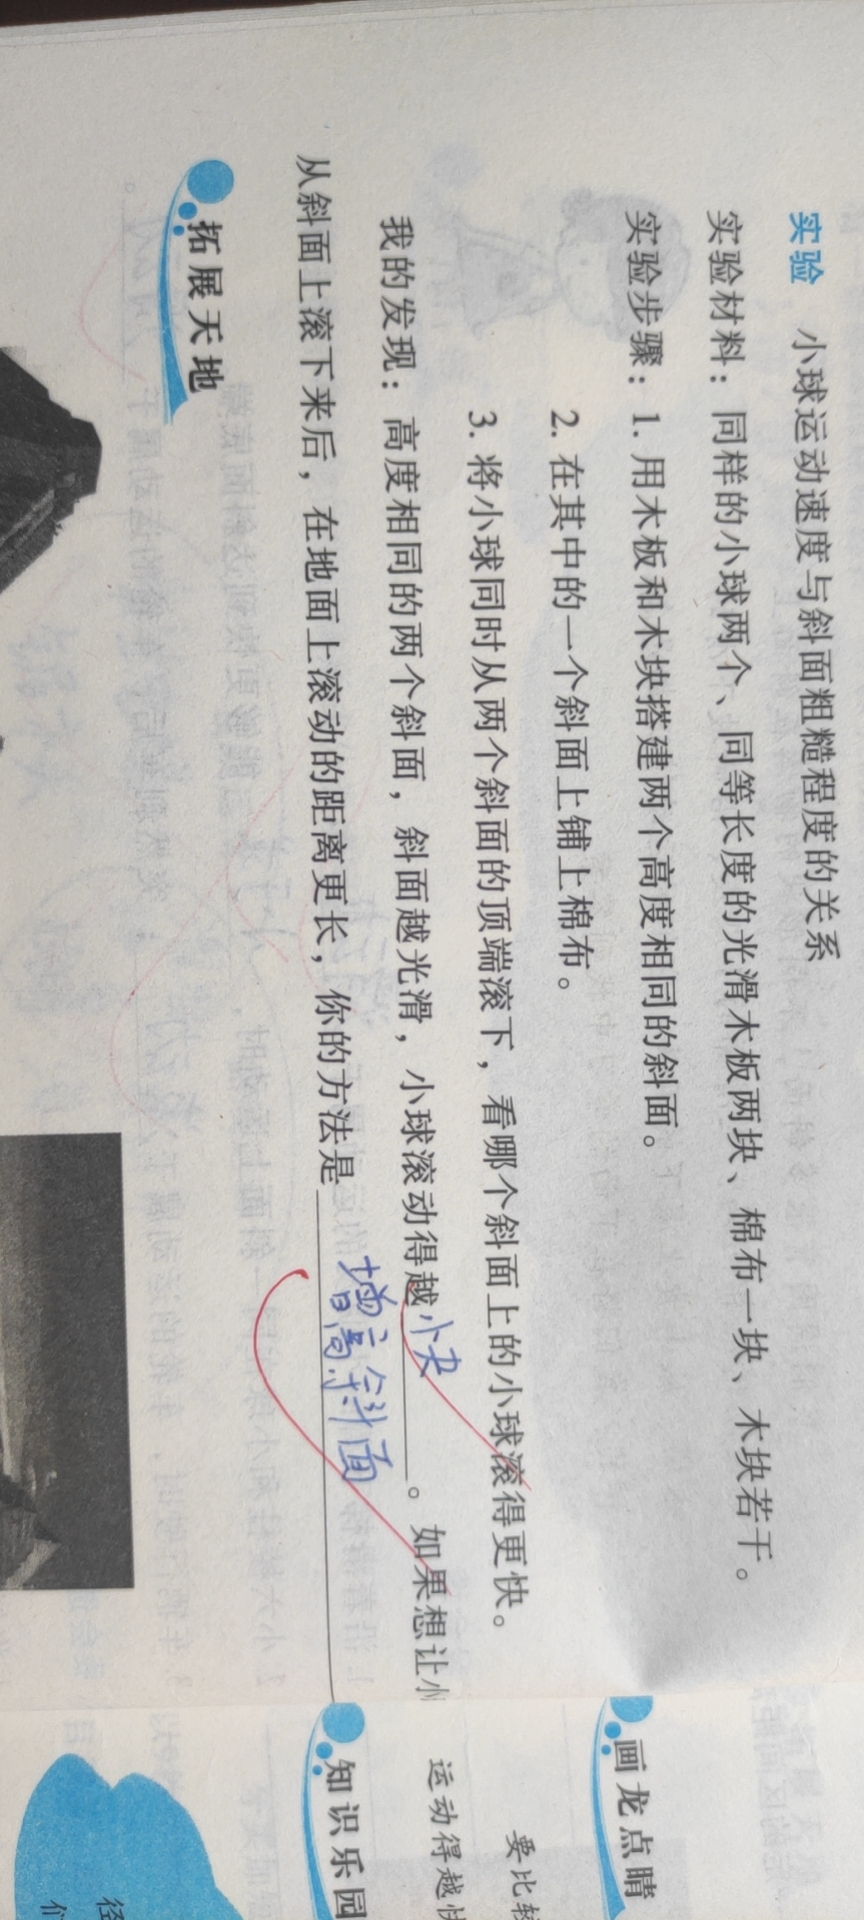 实验 小球运动速度与斜面粗糙程度的关系
实验材料：同样的小球两个、同等长度的光滑木板两块、棉布一块、木块若干。
实验步骤：1. 用木板和木块搭建两个高度相同的斜面。
2. 在其中的一个斜面上铺上棉布。
3. 将小球同时从两个斜面的顶端滚下，看哪个斜面上的小球滚得更快。
我的发现：高度相同的两个斜面，斜面越光滑，小球滚动得越快。如果想让小
从斜面上滚下来后，在地面上滚动的距离更长，你的方法是增高斜面
拓展天地
画龙点睛
要比较
运动得越快
知识乐园
径
们